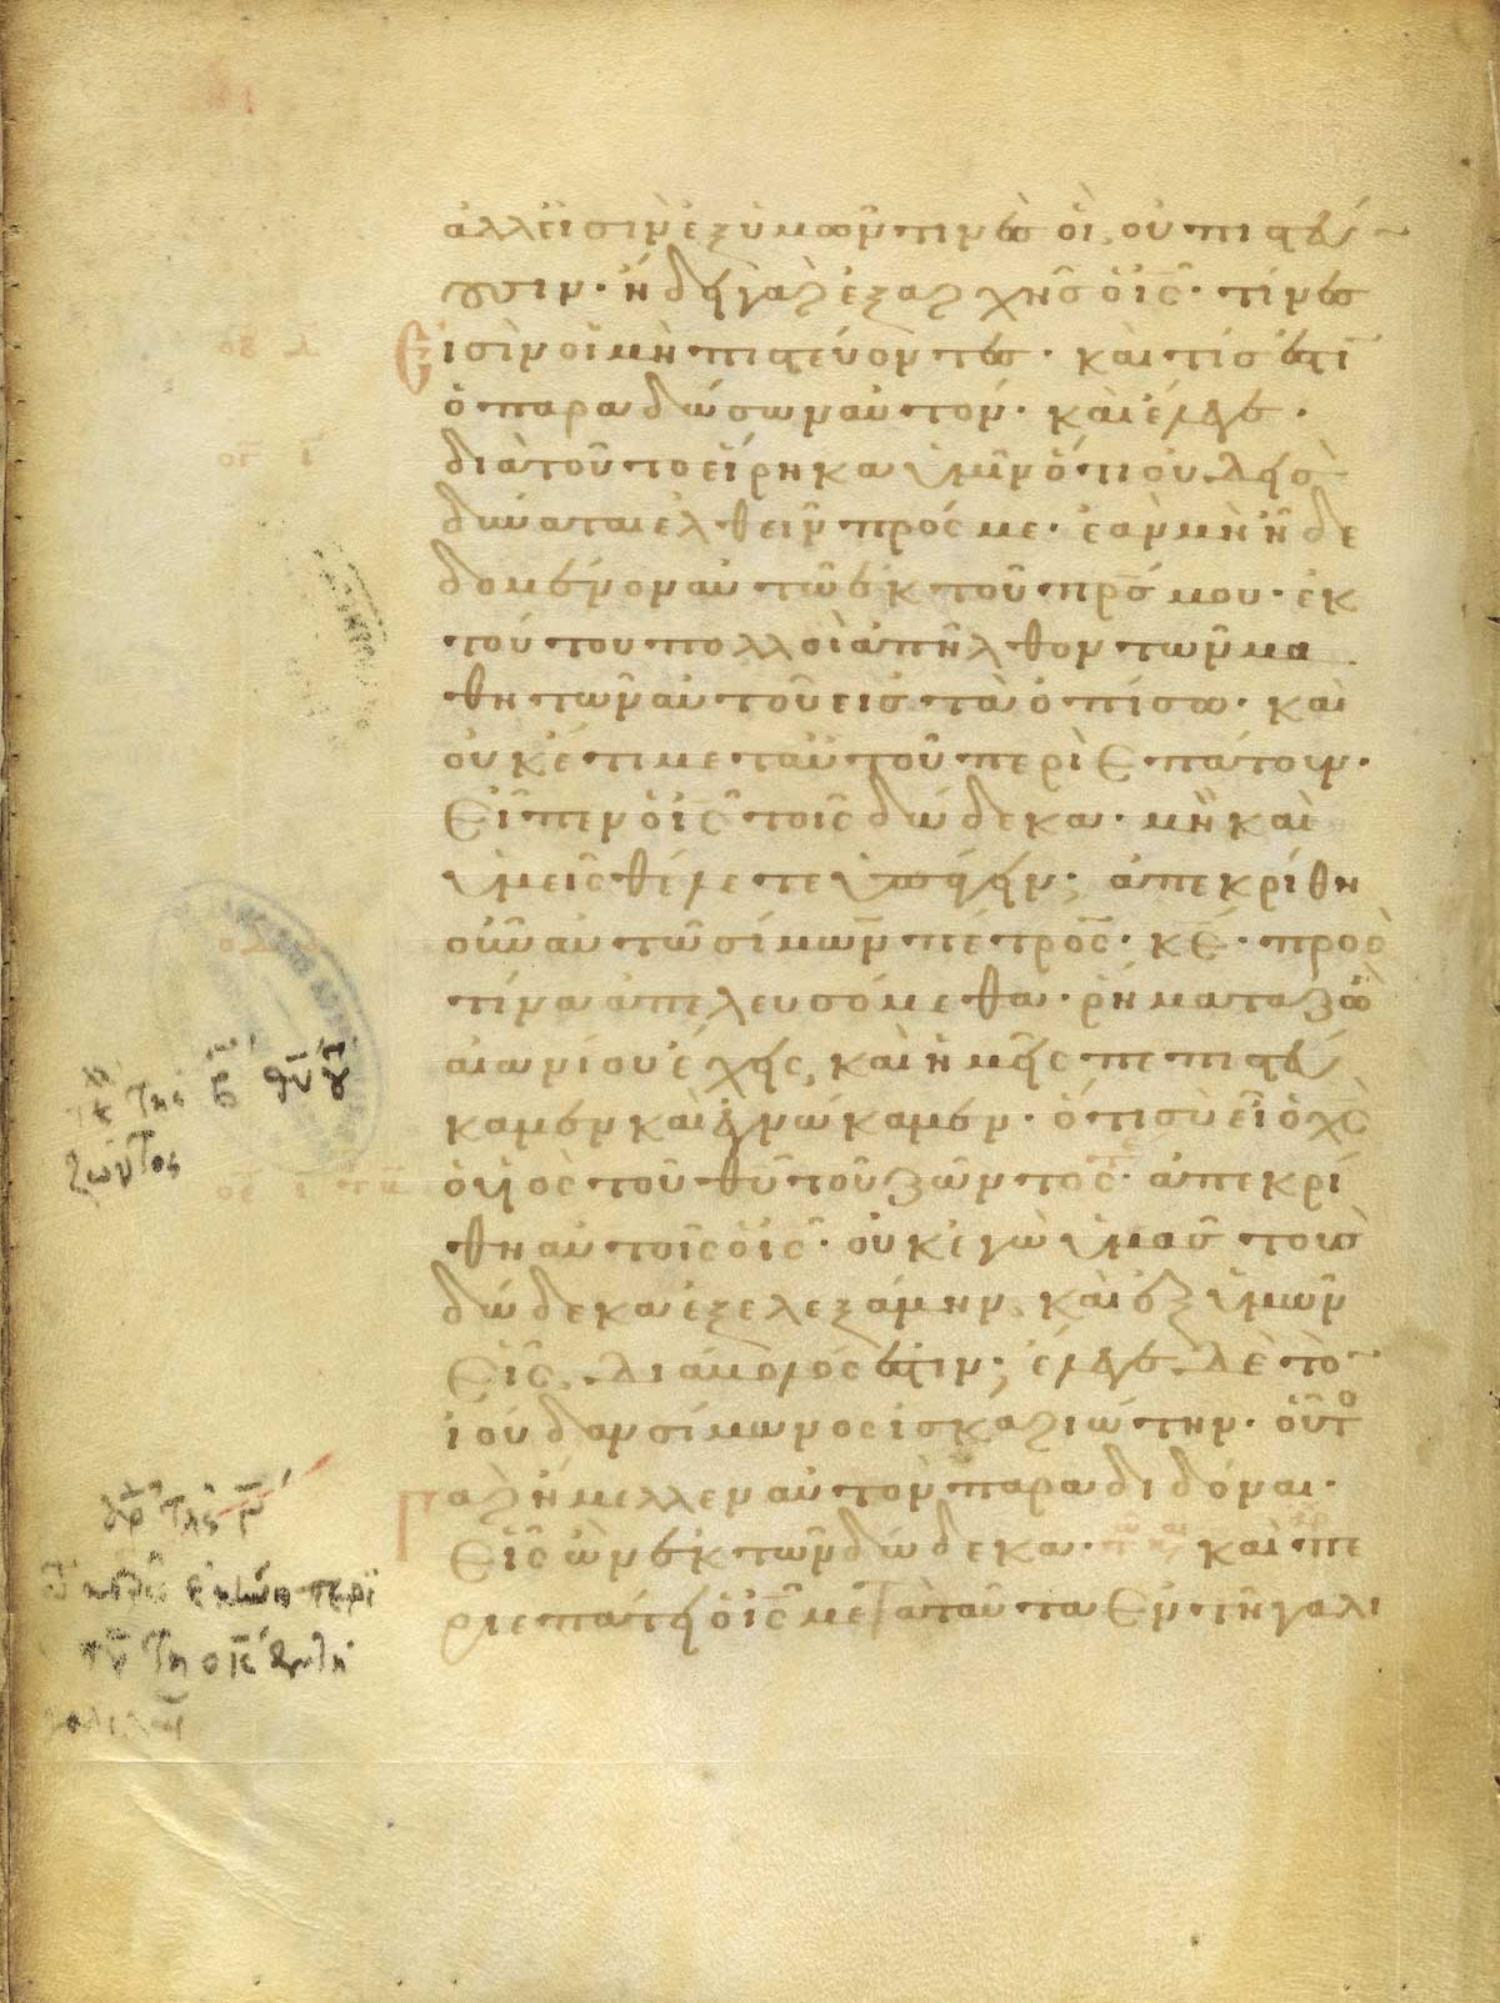 ἀλλ' εἰσὶν ἐξ ὑμῶν τινες οἳ οὐ πιστεύ
ουσιν· ἤδει γὰρ ἐξ ἀρχῆς ὁ ις· τίνες
Εἰσὶν οἱ μὴ πιστεύοντες· καὶ τίς ἐστι
ὁ παραδώσων αὐτόν· καὶ ἔλεγεν·
διὰ τοῦτο εἴρηκα ὑμῖν ὅτι οὐδεὶς
δύναται ἐλθεῖν πρός με· ἐὰν μὴ ἦ δε
δομένον αὐτῶ ἐκ τοῦ πρς μου· ἐκ
τούτου πολλοὶ ἀπῆλθον τῶν μα
θητῶν αὐτοῦ εἰς τὰ ὀπίσω· καὶ
οὐκέτι μετ' αὐτοῦ περιεπάτουν·
Εἶπεν ὁ ις τοῖς δώδεκα· μὴ καὶ
ὑμεῖς θέλετε ὑπάγειν; ἀπεκρίθη
οὖν αὐτῶ σίμων πέτρος· κε· πρὸς
τίνα ἀπελευσόμεθα· ῥήματα ζωῆς
αἰωνίου ἔχεις, καὶ ἡμεῖς πεπιστεύ
καμεν καὶ ἐγνώκαμεν· ὅτι σὺ εἶ ὁ χς
ὁ υἱὸς τοῦ θυ τοῦ ζῶντος· ἀπεκρί
θη αὐτοῖς ὁ ις· οὐκ ἐγὼ ὑμᾶς τοὺς
δώδεκα ἐξελεξάμην, καὶ ἐξ ὑμῶν
Εἷς διάβολός ἐστιν; ἔλεγεν δὲ τὸν
ἰούδαν σίμωνος ἰσκαριώτην· οὗτος
Γὰρ ἤμελλεν αὐτὸν παραδιδόναι·
Εἷς ὢν ἐκ τῶν δώδεκα· καὶ πε
ριεπάτει ὁ ις μετὰ ταῦτα Ἐν τῆ γαλι
τῆς θυ
ζῶντος